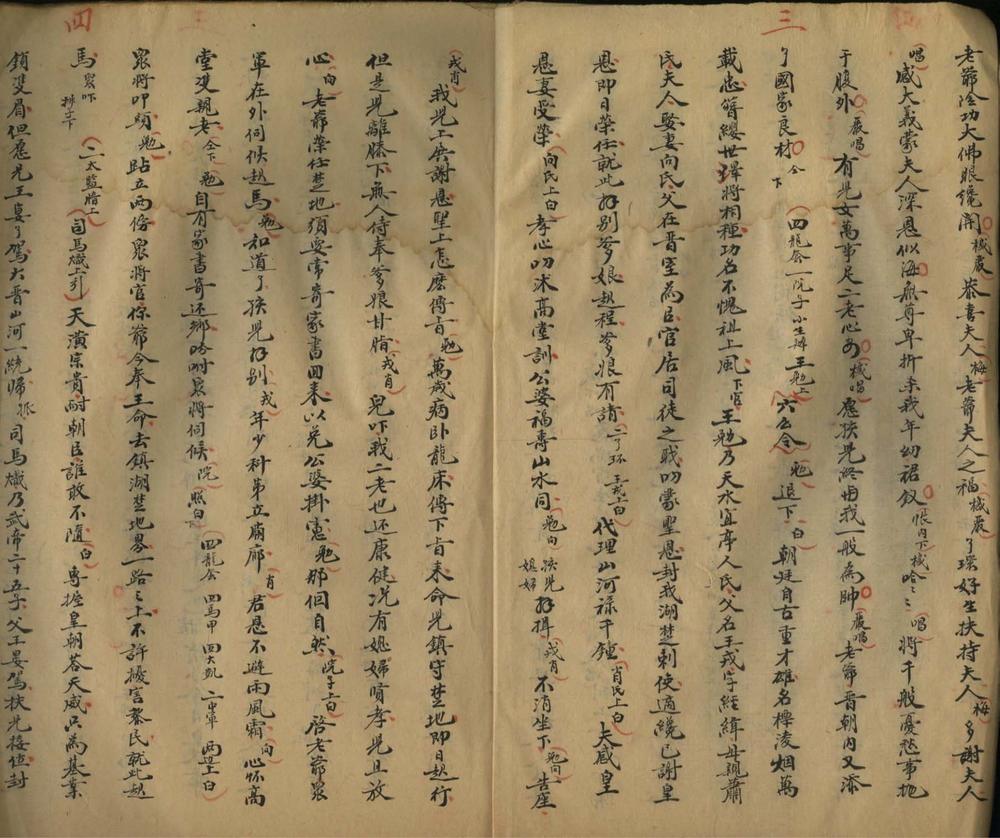 三
老爺陰功大佛眼纔開 棫嚴 恭喜夫人 梅 老爺夫人之福 棫嚴 了環好生扶持夫人 梅 多謝夫人
唱 感大義蒙夫人深恩似海無尊卑折柔我年幼裙釵 帳內下棫 哈哈 唱 將千般憂愁事拋
于腹外 嚴唱 有兒女萬事足二老心安 棫唱 應孩兒終由我一般為帥 嚴唱 老爺晉朝內又添
了國家良材 仝下 四龍套一院子小生辦王勉上 六公令 勉 退下 白 朝廷自古重才雄名標凌烟萬
載忠簪纓世擇將相種功名不愧祖上風 下官 王勉乃天水宜亭人氏父名王戎字經緯母親蕭
氏夫人娶妻向氏父在晉室為臣官居司徒之職叨蒙聖恩封我湖楚刺使適纔已謝皇
恩即日榮任就此拜別爹娘起程爹娘有請 二了环 王戎上白 代理山河祿千鍾 肖氏上白 夫感皇
恩妻受榮 向氏上白 孝心叨沐高堂訓公婆福壽山水同 勉向 孩兒媳婦 拜揖 戎肖 不消坐下 勉向 告座
四
戎肖 我兒上殿謝恩聖上怎麽傳旨 勉 萬歲病臥龍床傳下旨來命兒鎮守楚地即日起行
但是兒離膝下無人侍奉爹娘甘脂 戎肖 兒吓我二老也还康健况有媳婦賢孝兒且放
心 向 老爺榮任楚地須要常寄家書回來以免公婆掛慮 勉 那個自然 院子上白 啓老爺眾
軍在外伺候起馬 勉 知道了孩兒拜別 戎 年少科第立廟廊 肖 君恩不避雨風霜 向 心怀高
堂雙親老 仝下 勉 自有家書寄还鄉吩咐眾將伺候 院 照白 四龍套 四馬甲 四大凱 二中軍 两邊上白
眾將叩頭 勉 跕立两傍眾將官你爺今奉王命去鎮湖楚地界一路之上不許擾害黎民就此起
馬 眾吓 排子下 二太監暗上 司馬熾上引 天潢宗貴耐朝臣誰敢不隨 白 專握皇朝荅天威只為基業
鎖雙眉但愿兄王晏了駕大晉山河一統歸孤司馬熾乃武帝二十五子父王晏駕扶兄接位封